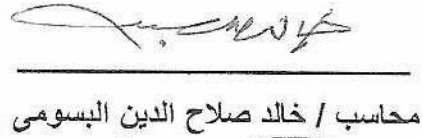 محاسب / خالد صلاح الدين البسومى